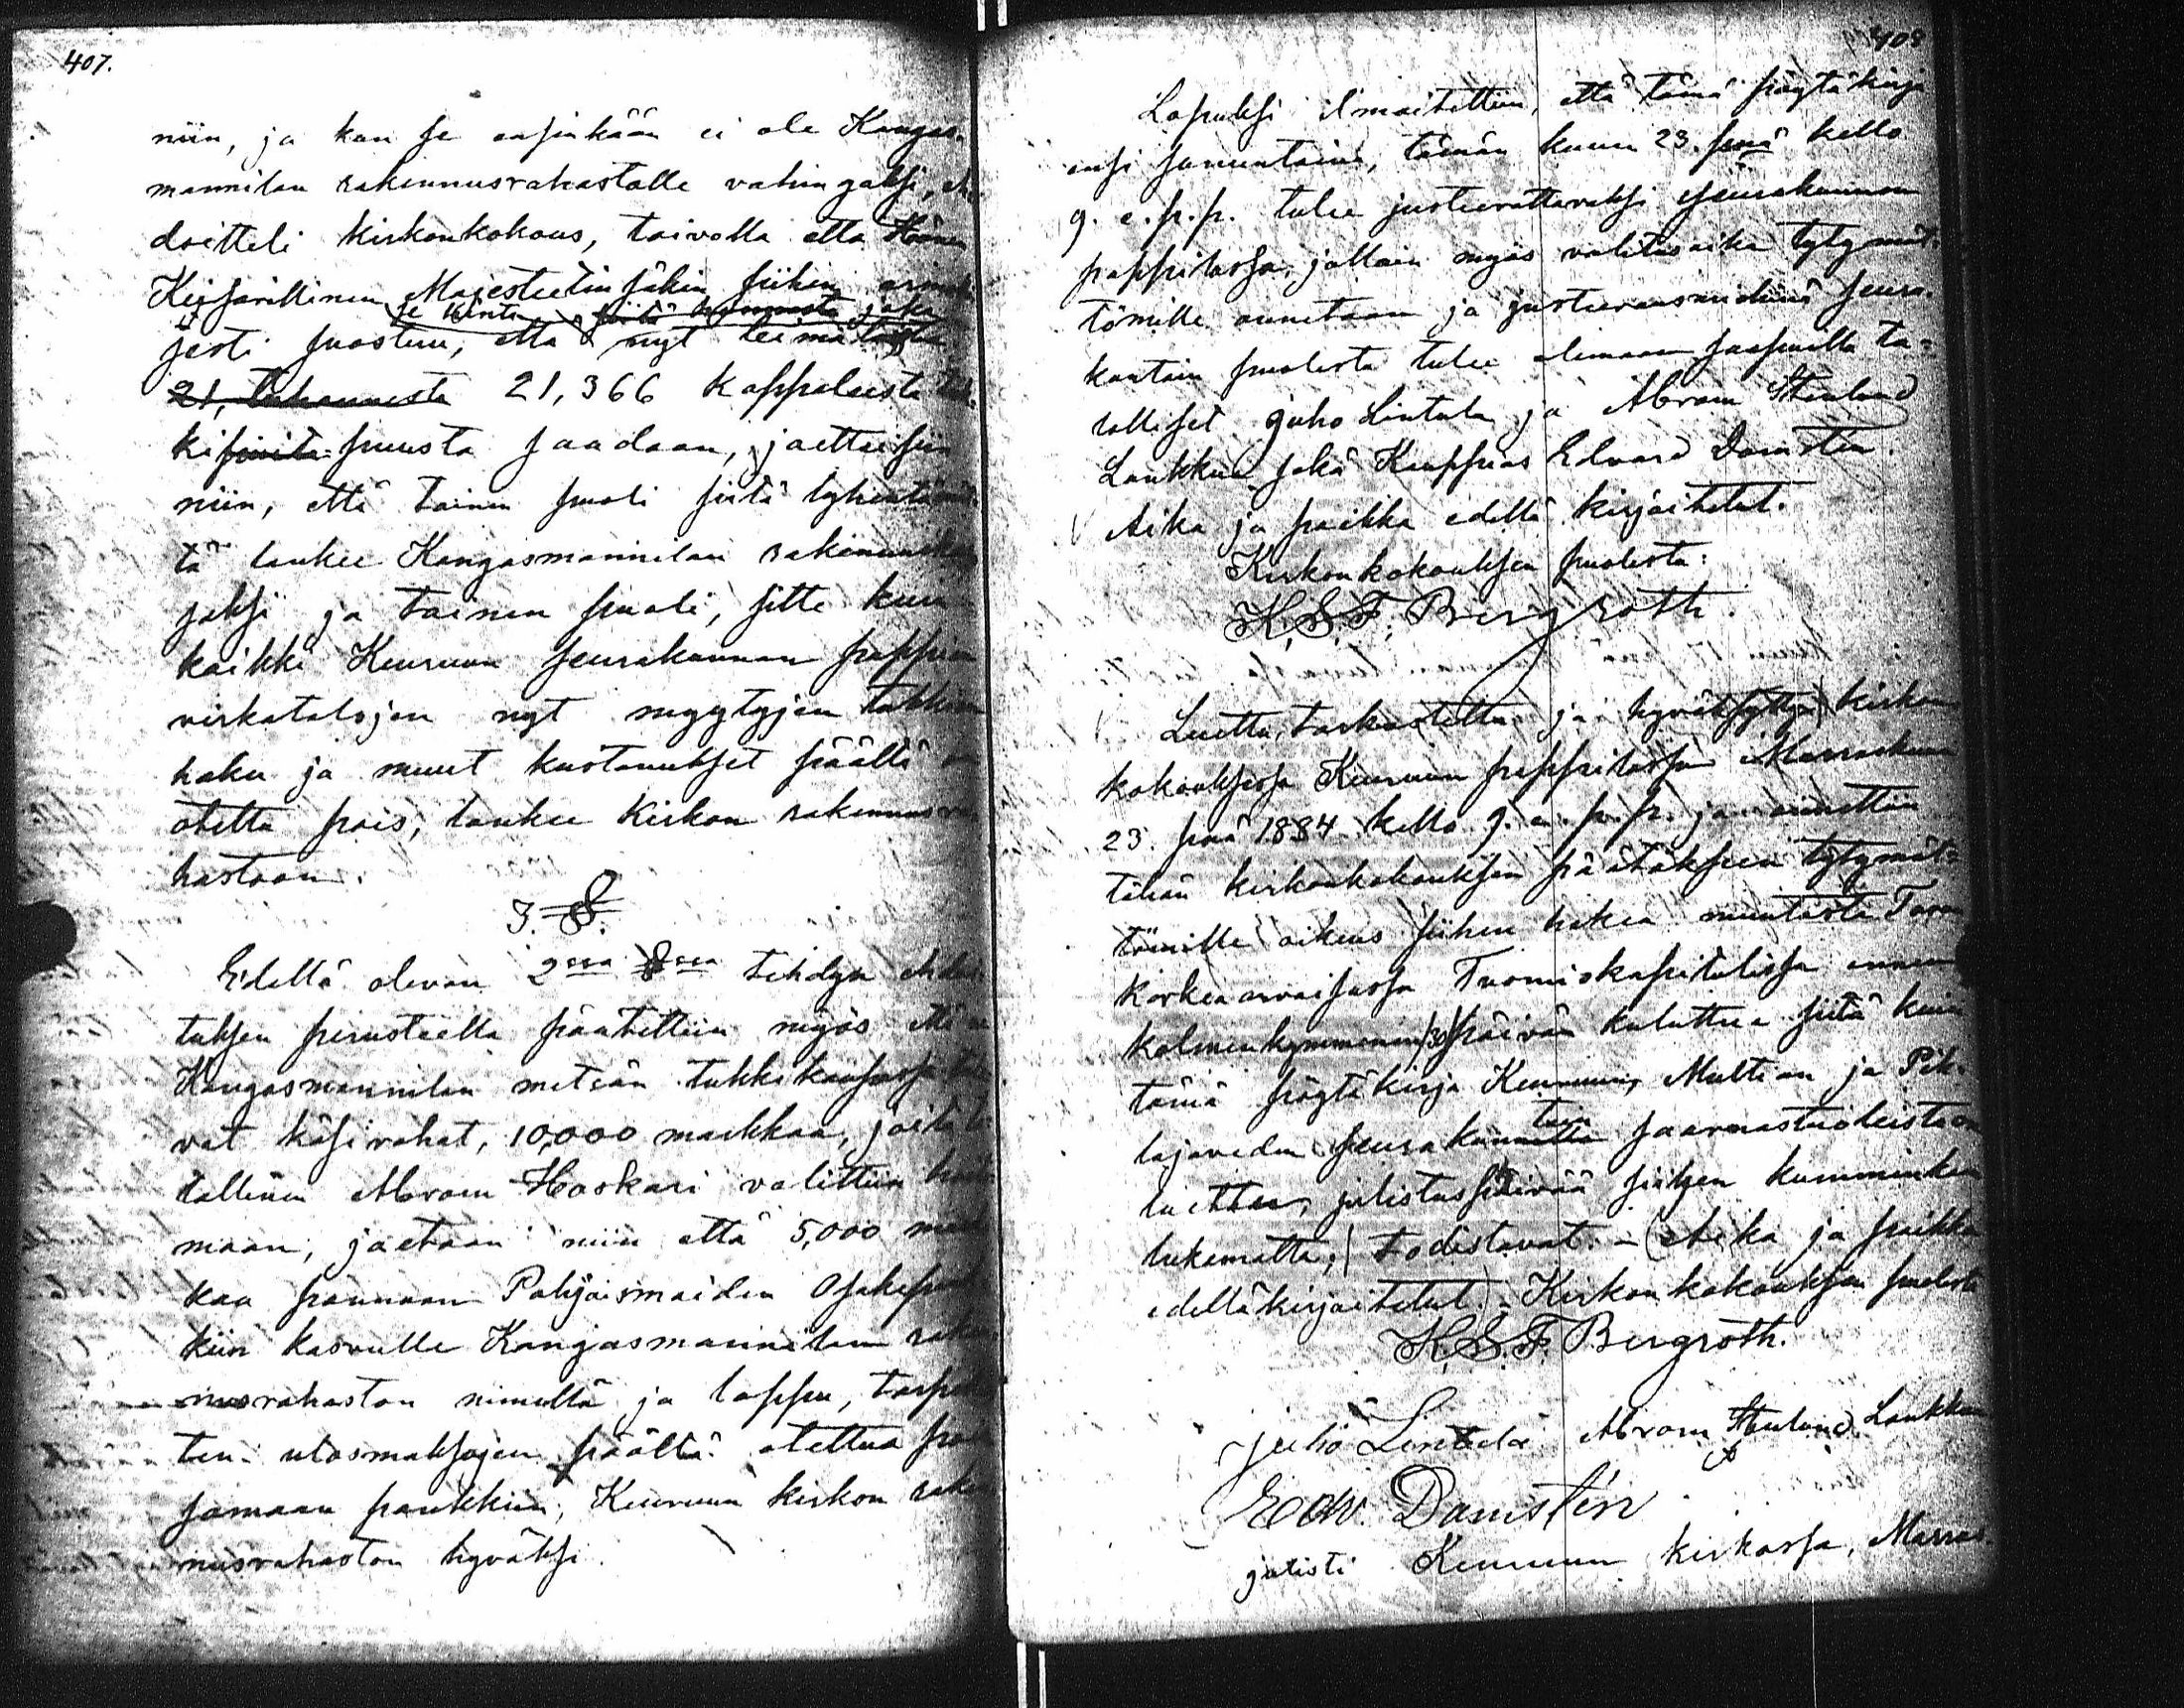 407.
niin, ja kun se ensinkään ei ole Kangas-
mannilan rakennusrahastolle vahingaksi, eh
doitteli kirkonkokous, toivolla että Hänen
Keisarillinen Majesteetin säkin siihen armol
se hinta, joka
sesti suostuu, että nyt leimatuista
21, tuhannesta 21,366 kappaleesta tuk-
ki siitä puusta saadaan, jaettaisiin
niin, että toinen puoli siitä
tä lankee Kangasmannilan
saksi ja toinen puoli, sitte kun
kaikki Keuruun seurakunnan pappien
virkatalojen nyt myytyjen tukkien
haku ja muut kustannukset päältä on
otettu pois, lankee kirkon rakennusra
hastoon.
3. §.
Edellä olevan 2ssa §ssa tehdyn ehdoi
tuksen perusteella päätettiin myös että ne
Kangasmannilan metsän tukkikaupassa
vat käsirahat, 10,000 markkaa, joita ta
lallinen Abram Hoskari valittiin
maan, jaetaan niin että 5,000 mark
kaa pannaan Pohjoismaiden Osakepank
kiin kasvulle Kangasmannilan raken
nusrahaston nimellä ja loppu, tarpel
ten ulosmaksojen päältä otettua pois
samaan pankkiin, Keuruun kirkon raken
nusrahaston hyväksi.
408
Lopuksi ilmoitettiin, että tämä pöytäkirja
ensi sunnuntaina, tämän kuun 23. pnä kello
9. e.p.p. tulee justeerattavaksi seurakunnan
pappilassa, jolloin myös valitusaika tytymät-
tömille annetaan ja justeerausmiehinä seura-
kuntain puolesta tulee olemaan saapuilla ta-
lolliset Juho Lintula ja Abram Stenlund
Lankkuu sekä Kauppias Edvard Danisten.
Aika ja paikka edellä kirjoitetut.
Kirkonkokouksen puolesta:
K. S. F. Bergroth.
Luettu, tarkastettu ja hyväksytty kirkon
kokouksessa Keuruun pappilassa Marraskuun
23. pnä 1884 kello 9. e. p. p. ja annettiin
tähän kirkonkokouksen päätökseen tytymät-
tömille oikeus siihen hakea muutosta Turun
Korkeaarvoisassa Tuomiokapitulissa ennen
kolmenkymmenen /30/ päivän kuluttua siitä kuin
tämä pöytäkirja Keuruun, Multian ja Pih-
tain
lajaveden seurakunnilta saarnastuoleista on
luettu, julistuspäivää siihen kumminkin
lukematta; todistavat. - Aika ja paikka
edelläkirjoitetut. - Kirkonkokouksen puolesta
K. S. F. Bergroth.
Juho Lintula Abram Stenlund Lankkuu
Edw. Danisten
julisti Keuruun kirkossa, Marras-